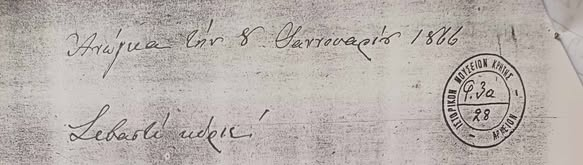 Ἀνώγεια τὴν 8 Ἰαννουαρίου 1866
Σεβαστέ κύριε!
ΙΣΤΟΡΙΚΟΝ ΜΟΥΣΕΙΟΝ ΚΡΗΤΗΣ
Φ. 3α
28
ΑΡΧΕΙΟΝ